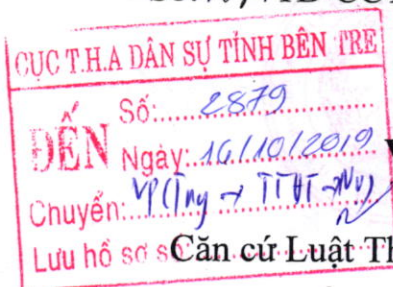 CỤC T.H.A DÂN SỰ TỈNH BẾN TRE
ĐẾN
Số: 2879
Ngày: 16/10/2019
Chuyển:
Lưu hồ sơ số
Căn cứ Luật Th